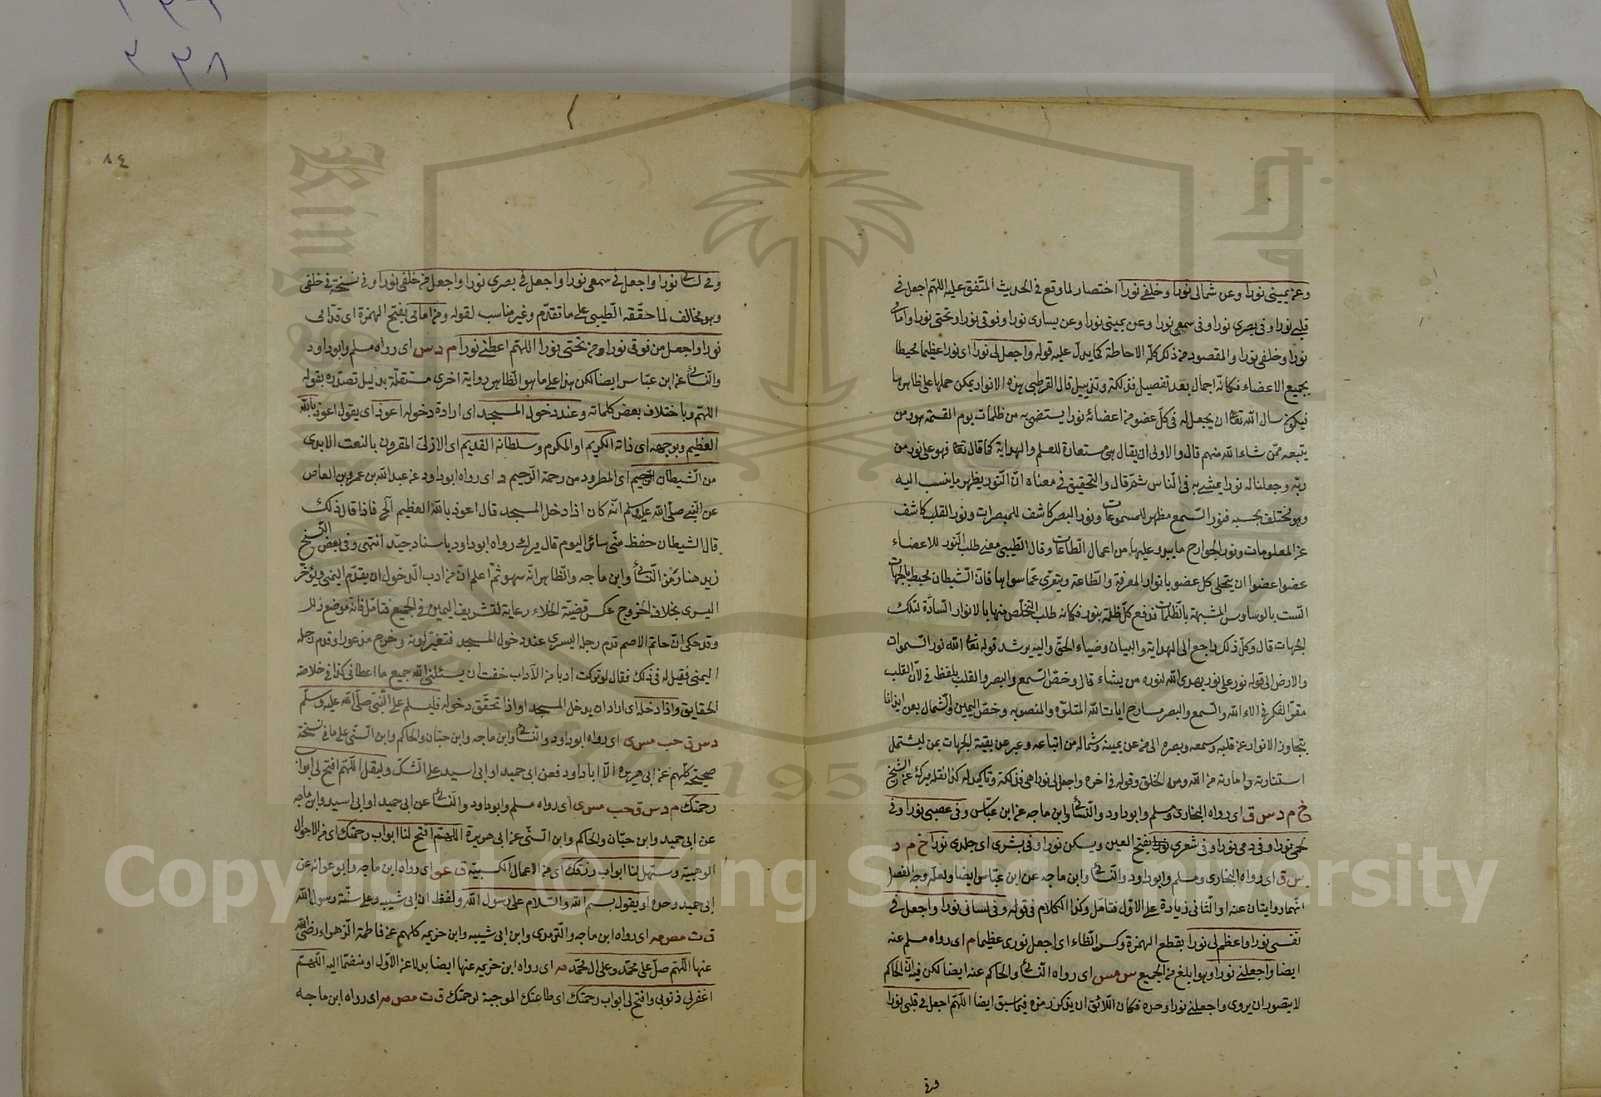 وعن يميني نورا وعن شمالي نورا وخلفي نورا اختصار لما وقع في الحديث المتفق عليه اللهم اجعل في
قلبي نورا وفي بصري نورا وفي سمعي نورا وعن يميني نورا وعن يساري نورا وفوقي نورا وتحتي نورا وأمامي
نورا وخلفي نورا والمقصود من ذلك كله الاحاطة كما يدل عليه قوله واجعل لي نورا اي نورا عظيما محيطا
بجميع الاعضاء فكانه اجمال بعد تفصيل فذلكة وتذييل قال القرطبي هذه الانوار يمكن حملها على ظاهرها
فيكون سأل الله تعا ان يجعل له في كل عضو من اعضائه نورا يستضيء به من ظلمات يوم القيمة هو ومن
يتبعه ممن شاء الله منهم قال والاولى ان يقال هي مستعارة للعلم والهداية كما قال تعا فهو على نور من
ربه وجعلنا له نورا يمشي به في الناس ثم قال والتحقيق في معناه ان النور يظهر ما ينسب اليه
وهو يختلف بحسبه فنور السمع مظهر للمسموعات ونور البصر كاشف للمبصرات ونور القلب كاشف
عن المعلومات ونور الجوارح ما يبدو عليها من اعمال الطاعات وقال الطيبي معنى طلب النور للاعضاء
عضوا عضوا ان يتحلى كل عضو بانوار المعرفة والطاعة ويتعرى عما سواها فان الشيطان يحيط بالجهات
الست بالوساوس المشبهة بالظلمات فدفع كل ظلمة بنور فكانه طلب التخلص منها بالانوار السادة لتلك
الجهات قال وكل ذلك راجع الى الهداية والبيان وضياء الحق واليه يرشد قوله تعا الله نور السموات
والارض الى قوله نور على نور يهدي الله لنوره من يشاء قال وخص السمع والبصر والقلب بلفظ في لان القلب
مقر الفكر في آلاء الله والسمع والبصر مسارح ايات الله المتلوة والمنصوبة وخص اليمين والشمال بعن ايذانا
بتجاوز الانوار عن قلبه وسمعه وبصره الى من عن يمينه وشماله من اتباعه وعبر عن بقية الجهات بمن ليشمل
استنارته وانارته من الله ومن الخلق وقوله في اخره واجعل لي نورا هي فذلكة وتأكيد له كذا نقله ميرك عن الشيخ
خ م د س ق اي رواه البخاري ومسلم وابو داود والنسائي وابن ماجه عن ابن عباس وفي عصبي نورا وفي
لحمي نورا وفي دمي نورا وفي شعري نورا بفتح العين ويسكن نورا وفي بشري اي جلدي نورا خ م د
س ق اي رواه البخاري ومسلم وابو داود والنسائي وابن ماجه عن ابن عباس ايضا ولعل وجه الفصل
انهما روايتان عنه او الثاني زيادة على الاول فتأمل وكذا الكلام في قوله وفي لساني نورا واجعل في
نفسي نورا واعظم لي نورا بقطع الهمزة وكسر الظاء اي اجعل نوري عظيما م اي رواه مسلم عنه
ايضا واجعلني نورا وهو ابلغ من الجميع س مس اي رواه النسائي والحاكم عنه ايضا لكن فيه ان الحاكم
لا يتصور ان يروي واجعلني نورا وحده فكان اللائق ان يذكر رمزه فيما سبق ايضا اللهم اجعل في قلبي نورا
وفي
٨٤
وفي لساني نورا واجعل في سمعي نورا واجعل في بصري نورا واجعل من خلفي نورا وفي نسخة في خلفي
وهو مخالف لما حققه الطيبي على ما تقدم وغير مناسب لقوله ومن امامي بفتح الهمزة اي قدامي
نورا واجعل من فوقي نورا ومن تحتي نورا اللهم اعطني نورا م د س اي رواه مسلم وابو داود
والنسائي عن ابن عباس ايضا لكن هذا على ما هو الظاهر رواية اخرى مستقلة بدليل تصدره بقوله
اللهم وباختلاف بعض كلماته وعند دخول المسجد اي ارادة دخوله اعوذ اي يقول اعوذ بالله
العظيم وبوجهه اي ذاته الكريم او المكرم وسلطانه القديم اي الازلي المقرون بالنعت الابدي
من الشيطان الرجيم اي المطرود من رحمة الرحيم د اي رواه ابو داود عن عبد الله بن عمرو بن العاص
عن النبي صلى الله عليه وسلم انه كان اذا دخل المسجد قال اعوذ بالله العظيم الخ فاذا قال ذلك
قال الشيطان حفظ مني سائر اليوم قال ميرك رواه ابو داود باسناد جيد انتهى وفي بعض النسخ
زيد هنا رمز النسائي وابن ماجه والظاهر انه سهو ثم اعلم ان من ادب الدخول ان يقدم اليمنى ويؤخر
اليسرى بخلاف الخروج عكس قضية الخلاء رعاية لتشريف اليمين في الجميع فتأمل فانه موضع زلل
وقد حكي ان حاتم الاصم قدم رجله اليسرى عند دخول المسجد فتغير لونه وخرج مذعورا وقدم رجله
اليمنى فقيل له في ذلك فقال لو تركت ادبا من الآداب خفت ان يسلبني الله جميع ما اعطاني كذا في خلاصة
الحقايق واذا دخله اي اراد ان يدخل المسجد او اذا تحقق دخوله فليسلم على النبي صلى الله عليه وسلم
د س ق حب مس ي اي رواه ابو داود والنسائي وابن ماجه وابن حبان والحاكم وابن السني على ما في نسخة
صحيحة كلهم عن ابي هريرة الا ابا داود فعن ابي حميد او ابي اسيد على الشك وليقل اللهم افتح لي ابواب
رحمتك م د س ق حب مس ي اي رواه مسلم وابو داود والنسائي عن ابي حميد او ابي اسيد وابن ماجه
عن ابي حميد وابن حبان والحاكم وابن السني عن ابي هريرة اللهم افتح لنا ابواب رحمتك اي من الاحوال
الوهبية وسهل لنا ابواب رزقك اي من الاعمال الكسبية ق عو اي رواه ابن ماجه وابو عوانه عن
ابي حميد وحده او يقول بسم الله والسلام على رسول الله ولفظ ابن ابي شيبه وعلى سنة رسول الله
ق ت مص مه اي رواه ابن ماجه والترمذي وابن ابي شيبه وابن خزيمه كلهم عن فاطمة الزهراء رضي الله
عنها اللهم صل على محمد وعلى ال محمد مه اي رواه ابن خزيمه عنها ايضا بدلا عن الاول او منضما اليه اللهم
اغفر لي ذنوبي وافتح لي ابواب رحمتك اي طاعتك الموجبة لرحمتك ق ت مص مه اي رواه ابن ماجه
Copyright © King Saud University
1957